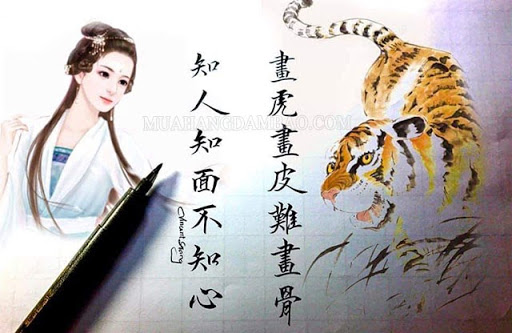 畫虎畫皮難畫骨
知人知面不知心
MUAHANGDAMTAO.COM